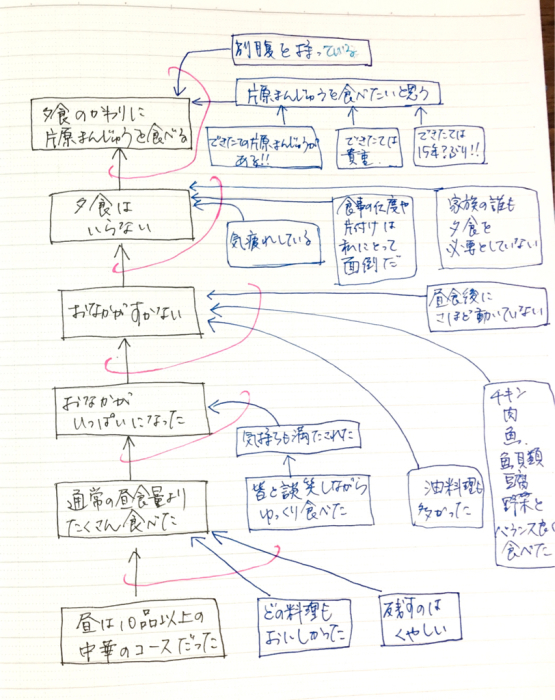 別腹を持っている
片原まんじゅうを食べたいと思う
夕食のかわりに
片原まんじゅうを食べる
できたての片原まんじゅうが
ある!!
できたては
貴重
できたては
15年?ぶり!!
夕食は
いらない
気疲れしている
食事の仕度や
片付けは
私にとって
面倒だ
家族の誰も
夕食を
必要としていない
おなかがすかない
昼食後に
さほど動いていない
おなかが
いっぱいになった
気持ちも満たされた
チキン
肉
魚
魚貝類
豆腐
野菜と
バランス良く
食べた
通常の昼食量より
たくさん食べた
皆と談笑しながら
ゆっくり食べた
油料理も
多かった
昼は10品以上の
中華のコースだった
どの料理も
おいしかった
残すのは
くやしい